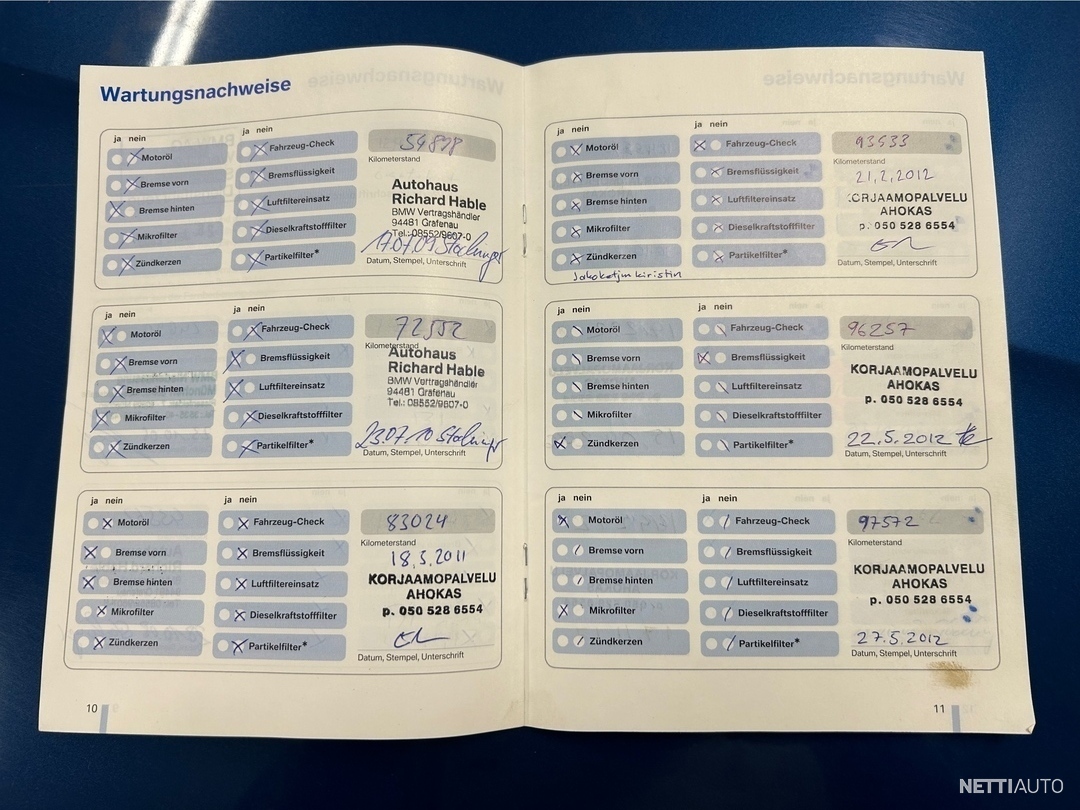 Wartungsnachweise
ja nein ja nein
Motoröl Fahrzeug-Check
Bremse vorn Bremsflüssigkeit
Bremse hinten Luftfiltereinsatz
Mikrofilter Dieselkraftstofffilter
Zündkerzen Partikelfilter*
Autohaus
Richard Hable
BMW Vertragshändler
94481 Grafenau
Tel.:08552/9607-0
17.07.09
Datum, Stempel, Unterschrift
ja nein ja nein
Motoröl Fahrzeug-Check
Bremse vorn Bremsflüssigkeit
Bremse hinten Luftfiltereinsatz
Mikrofilter Dieselkraftstofffilter
Zündkerzen Partikelfilter*
72552
Kilometerstand
Autohaus
Richard Hable
BMW Vertragshändler
94481 Grafenau
Tel.: 08552/9607-0
23.07.10
Datum, Stempel, Unterschrift
ja nein ja nein
Motoröl Fahrzeug-Check
Bremse vorn Bremsflüssigkeit
Bremse hinten Luftfiltereinsatz
Mikrofilter Dieselkraftstofffilter
Zündkerzen Partikelfilter*
83024
Kilometerstand
KORJAAMOPALVELU
AHOKAS
p. 050 528 6554
Datum, Stempel, Unterschrift
10
ja nein ja nein
Motoröl Fahrzeug-Check
Bremse vorn Bremsflüssigkeit
Bremse hinten Luftfiltereinsatz
Mikrofilter Dieselkraftstofffilter
Zündkerzen Partikelfilter*
93533
Kilometerstand
21.2.2012
KORJAAMOPALVELU
AHOKAS
p. 050 528 6554
Datum, Stempel, Unterschrift
ja nein ja nein
Motoröl Fahrzeug-Check
Bremse vorn Bremsflüssigkeit
Bremse hinten Luftfiltereinsatz
Mikrofilter Dieselkraftstofffilter
Zündkerzen Partikelfilter*
96257
Kilometerstand
KORJAAMOPALVELU
AHOKAS
p. 050 528 6554
22.5.2012
Datum, Stempel, Unterschrift
ja nein ja nein
Motoröl Fahrzeug-Check
Bremse vorn Bremsflüssigkeit
Bremse hinten Luftfiltereinsatz
Mikrofilter Dieselkraftstofffilter
Zündkerzen Partikelfilter*
97572
Kilometerstand
KORJAAMOPALVELU
AHOKAS
p. 050 528 6554
27.5.2012
Datum, Stempel, Unterschrift
11
NETTIAUTO